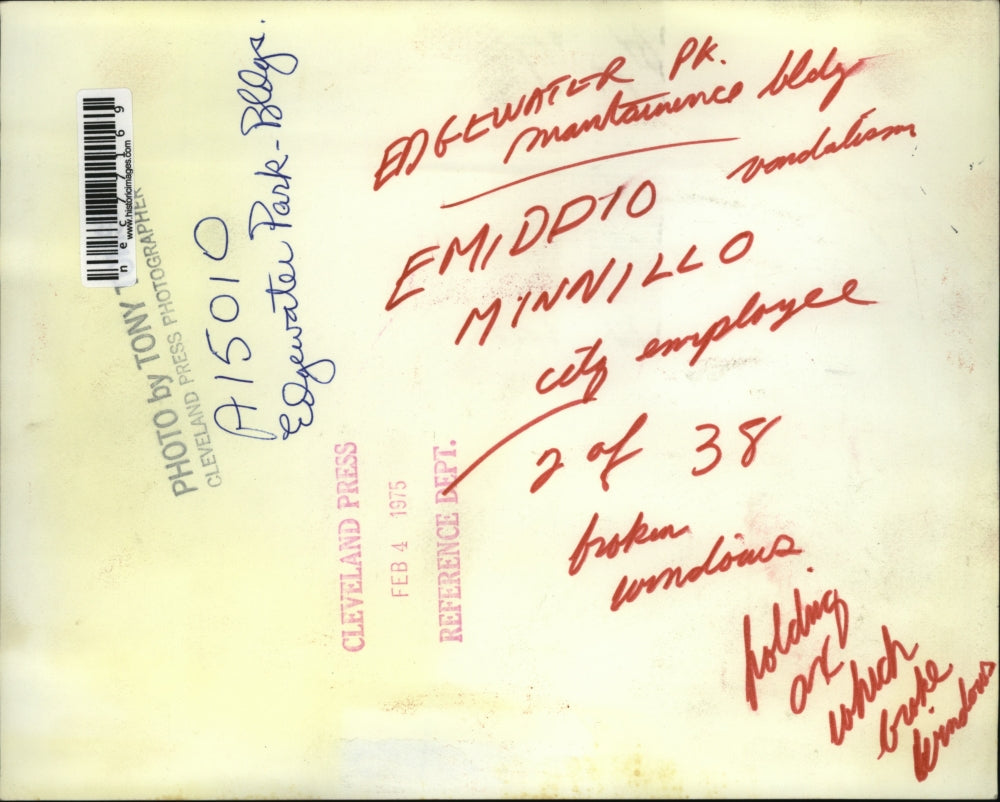 EDGEWATER PK.
mantainence bldg
vandalism
EMIDDIO
MINNILLO
city employee
2 of 38
broken
windows.
holding
ax
which
broke
windows
A15010
Edgewater Park-Bldgs.
PHOTO by TONY
CLEVELAND PRESS PHOTOGRAPHER
www.historicimages.com
CLEVELAND PRESS
FEB 4 1975
REFERENCE DEPT.